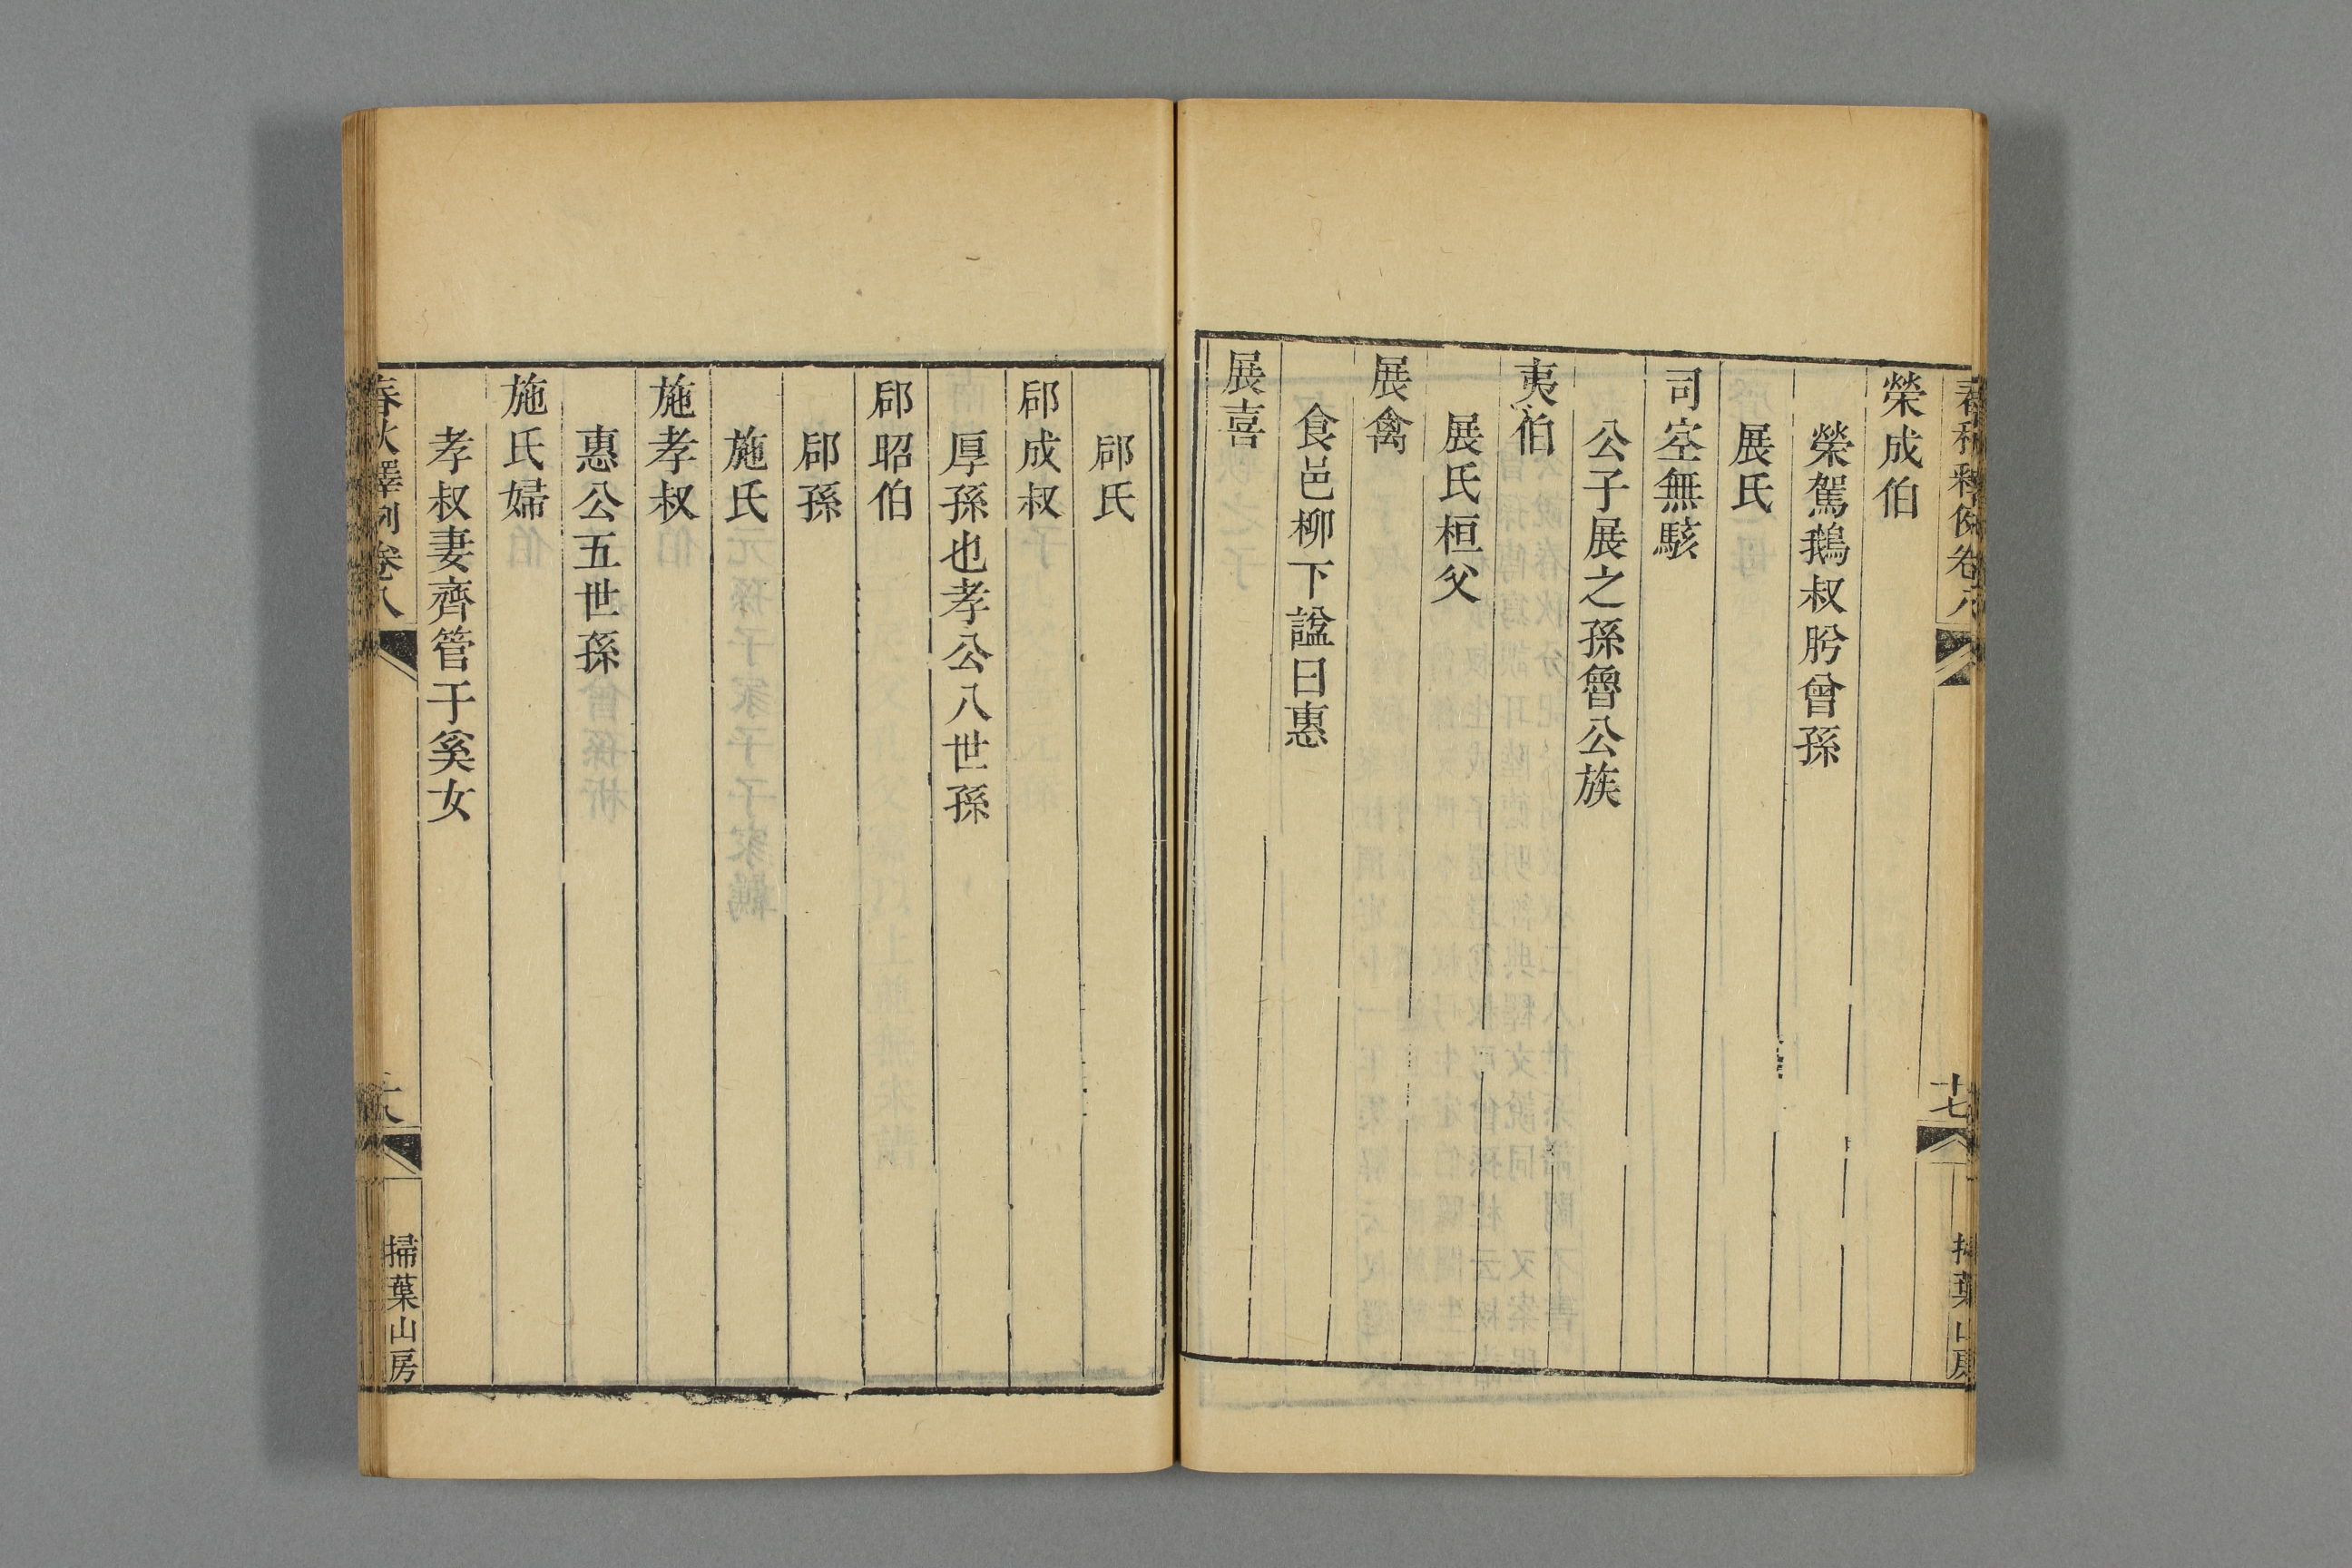 春秋釋例卷八
十七
掃葉山房
榮成伯
榮駕鵝叔肸曾孫
展氏
司空無駭
公子展之孫魯公族
夷伯
展氏桓父
展禽
食邑柳下諡曰惠
展喜
郈氏
郈成叔
厚孫也孝公八世孫
郈昭伯
郈孫
施氏
施孝叔
惠公五世孫
施氏婦
孝叔妻齊管于奚女
春秋釋例卷八
十八
掃葉山房